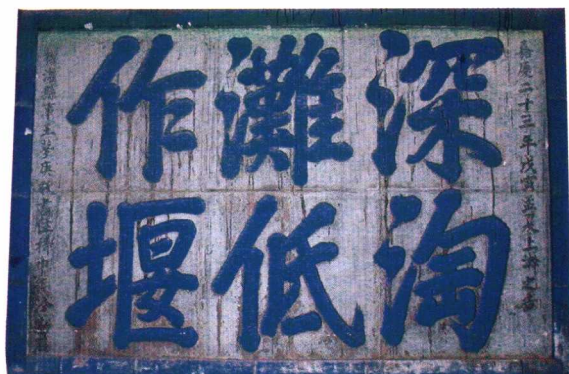 嘉慶二十三年戊寅孟冬上澣之吉
深淘
灘低
作堰